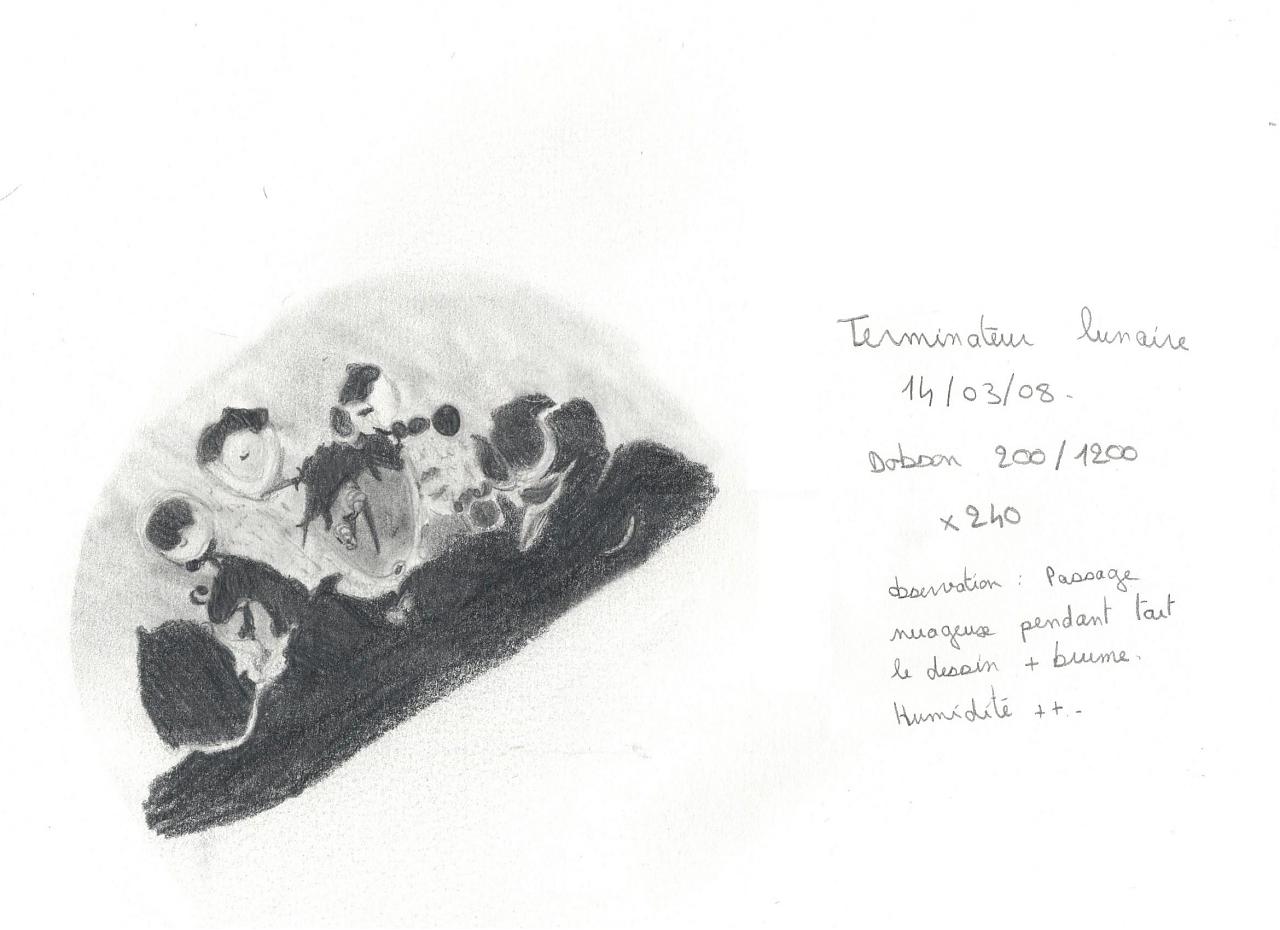 Terminateur lunaire
14/03/08.
Dobson 200/1200
x240
observation : Passage
nuageux pendant tout
le dessin + brume.
Humidité ++.